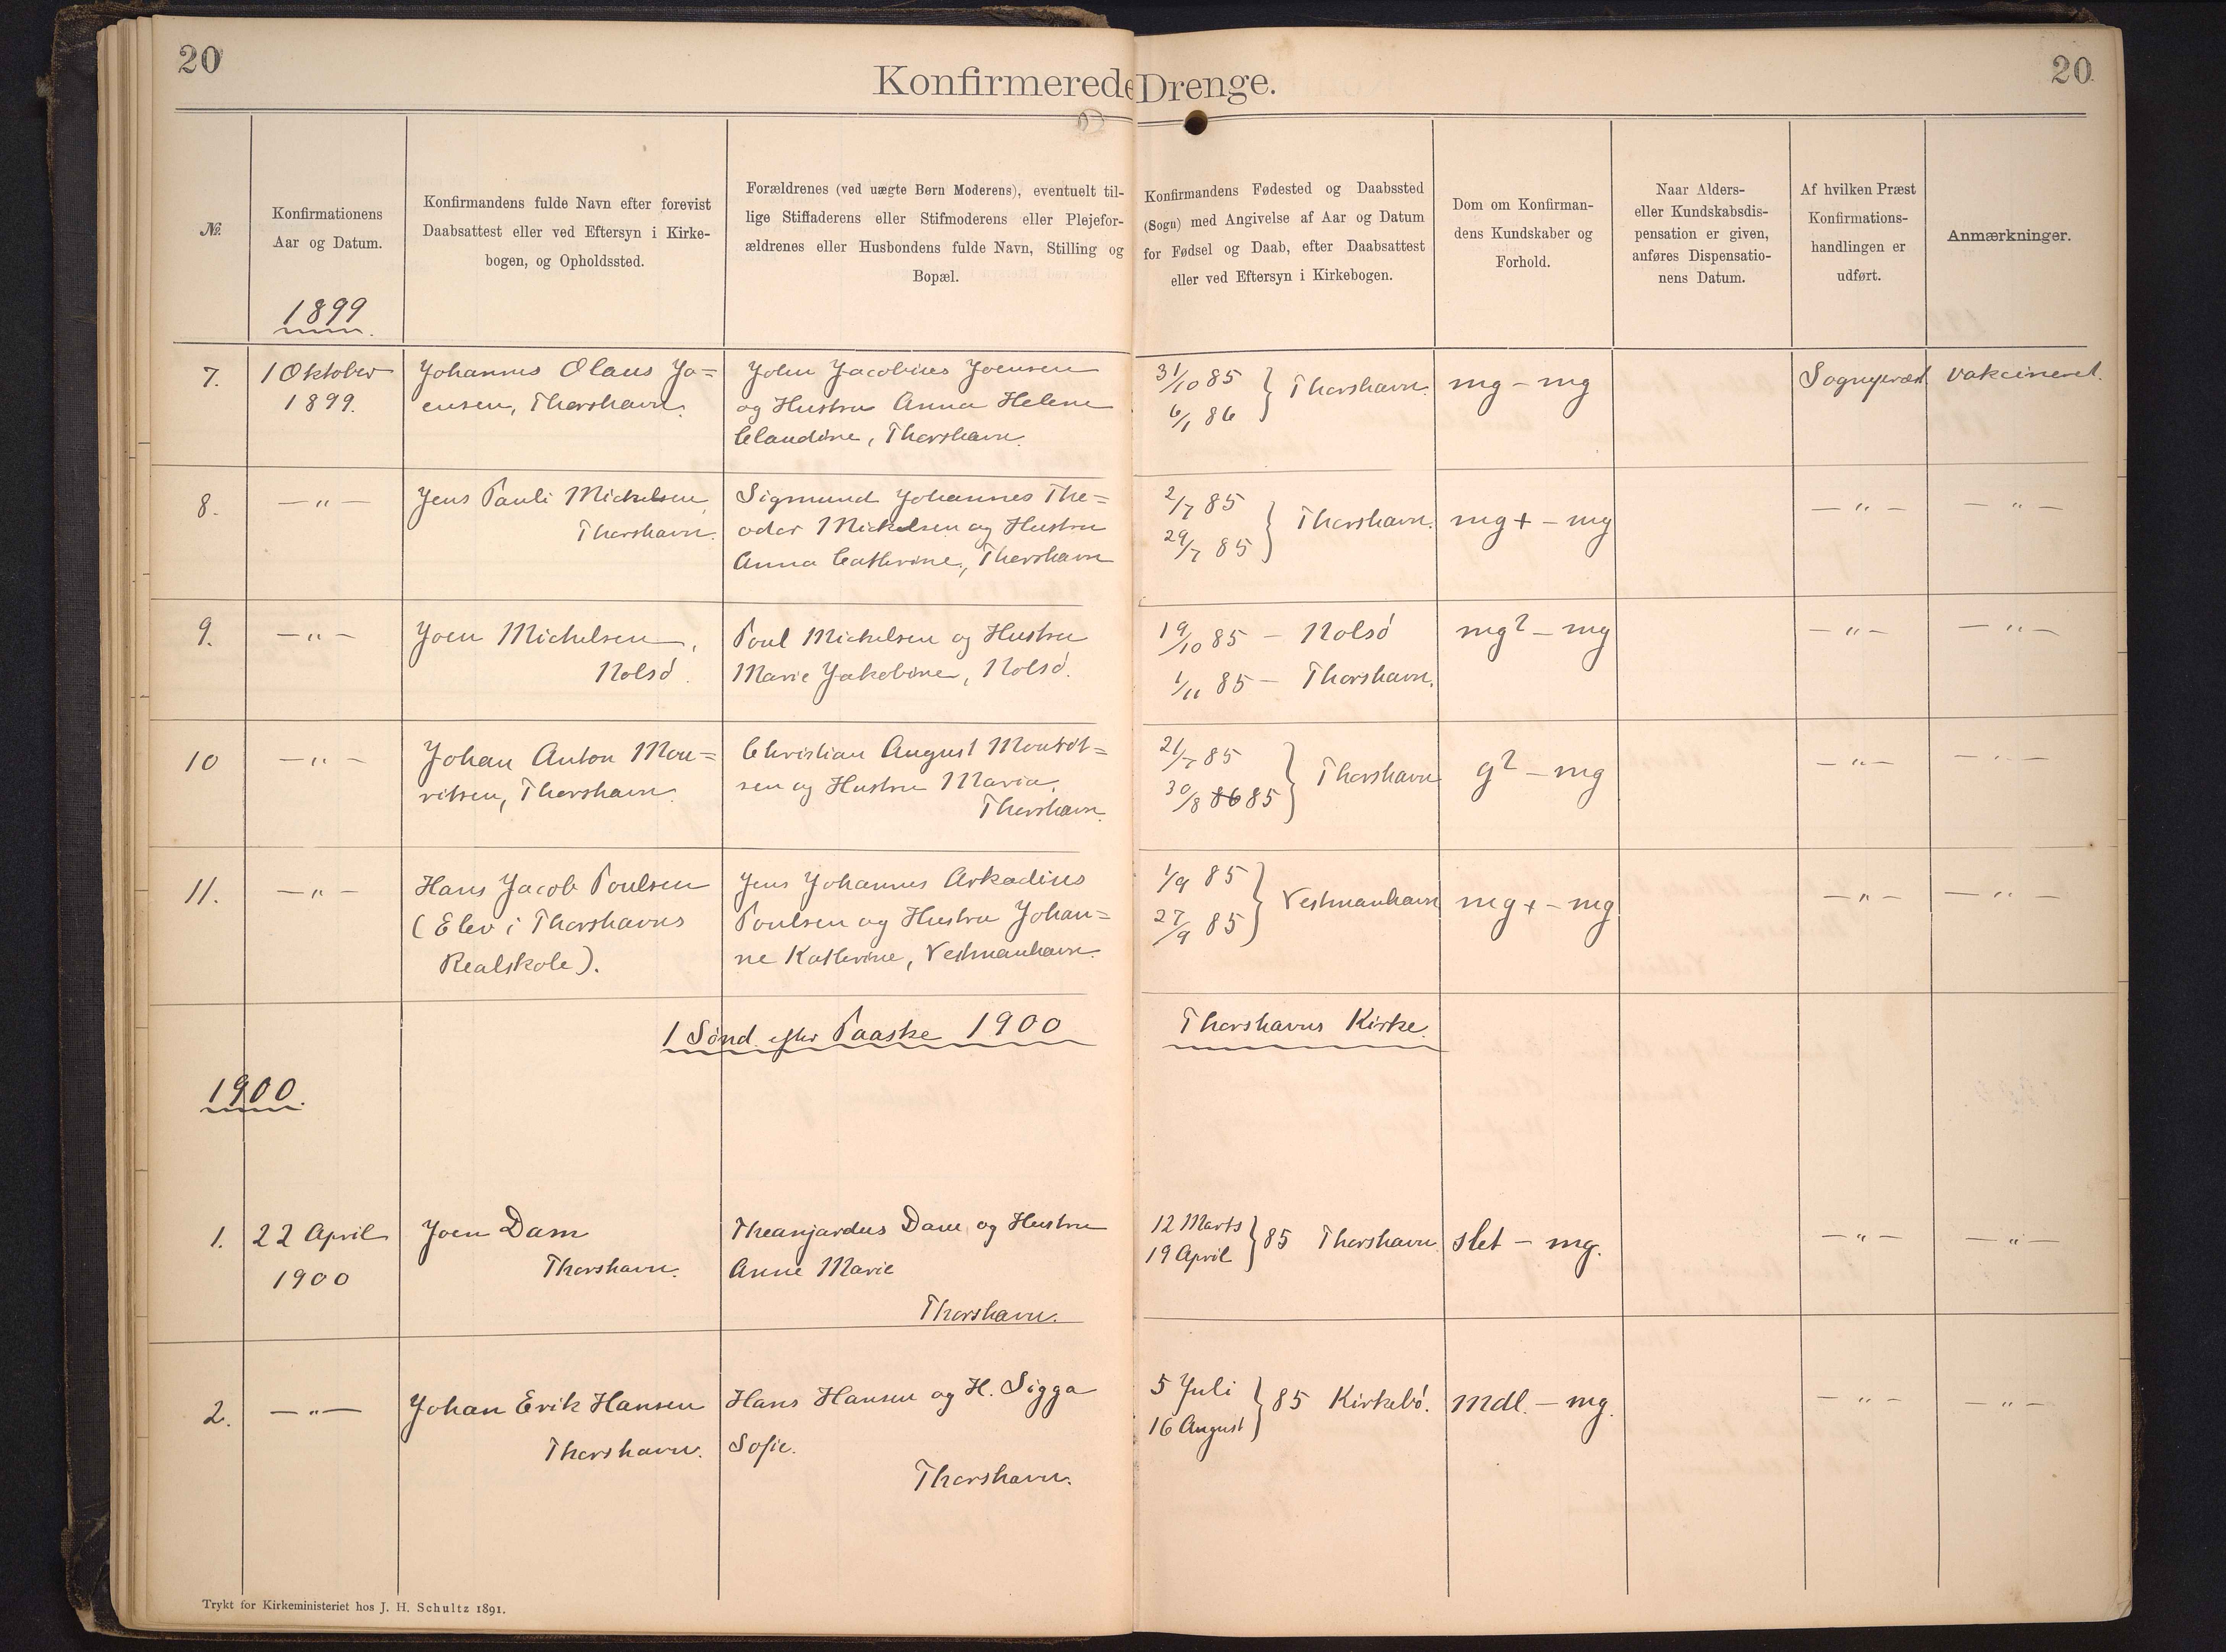 20
20
Konfirmerede Drenge.
№.
Konfirmationens
Aar og Datum.
1899
Konfirmandens fulde Navn efter forevist
Daabsattest eller ved Eftersyn i Kirke-
bogen, og Opholdssted.
Forældrenes (ved uægte Børn Moderens), eventuelt til-
lige Stiffaderens eller Stifmoderens eller Plejefor-
ældrenes eller Husbondens fulde Navn, Stilling og
Bopæl.
Konfirmandens Fødested og Daabssted
(Sogn) med Angivelse af Aar og Datum
for Fødsel og Daab, efter Daabsattest
eller ved Eftersyn i Kirkebogen.
Dom om Konfirman-
dens Kundskaber og
Forhold.
Naar Alders-
eller Kundskabsdis-
pensation er given,
anføres Dispensatio-
nens Datum.
Af hvilken Præst
Konfirmations-
handlingen er
udført.
Anmærkninger.
7.
1 Oktober
1899.
Johannes Olaus Jo=
ensen, Thorshavn.
John Jacobius Joensen
og Hustru Anna Helene
Claudine, Thorshavn.
31/10 85
6/1 86
} Thorshavn.
mg - mg
Sognepræst
vakcineret.
8.
— " —
Jens Pauli Michelsen,
Thorshavn.
Sigmund Johannes The=
odor Mickelsen og Hustru
Anna Cathrine, Thorshavn
2/7 85
29/7 85
} Thorshavn.
mg + - mg
— " —
— " —
9.
— " —
Joen Michelsen,
Nolsö.
Poul Michelsen og Hustru
Marie Jakobine, Nolsö.
19/10 85 - Nolsö
1/11 85 - Thorshavn.
mg? - mg
— " —
— " —
10
— " —
Johan Anton Mou=
ritsen, Thorshavn.
Christian August
sen og Hustru Maria,
Thorshavn.
21/7 85
30/8 86 85
} Thorshavn
g? - mg
— " —
— " —
11.
— " —
Hans Jacob Poulsen
(Elev i Thorshavns
Realskole).
Jens Johannes Arkadius
Poulsen og Hustru Johan=
ne Kathrine, Vestmanhavn.
1/9 85
27/9 85
} Vestmanhavn
mg + - mg
— " —
— " —
1 Sönd. efter Paaske 1900
Thorshavns Kirke
1900.
1.
22 April
1900
Joen Dam
Thorshavn.
Dam og Hustru
Anne Marie
Thorshavn.
12 Marts
19 April
} 85 Thorshavn
slet - mg.
— " —
— " —
2.
— " —
Johan Erik Hansen
Thorshavn.
Hans Hansen og H. Sigga
Sofie.
Thorshavn.
5 Juli
16 August
} 85 Kirkebö.
mdl. - mg.
— " —
— " —
Trykt for Kirkeministeriet hos J. H. Schultz 1891.